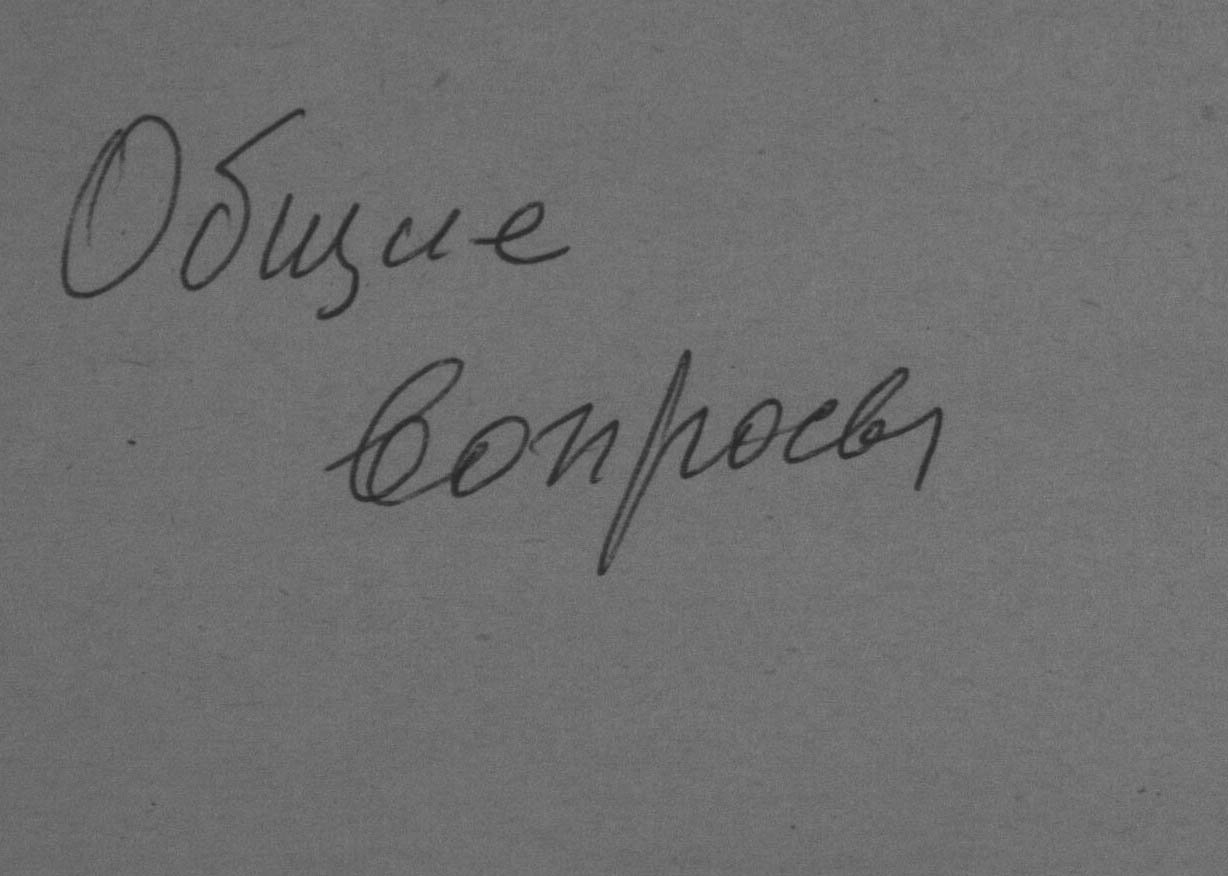 Общие
вопросы